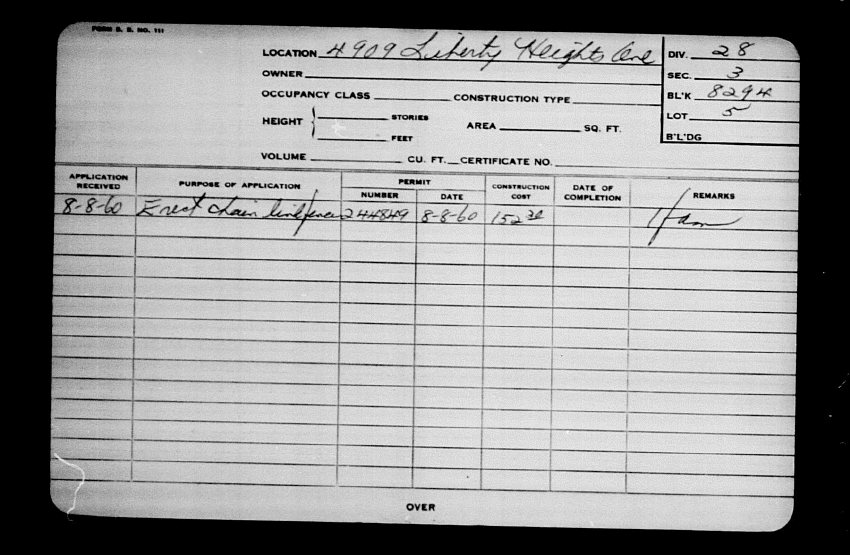 FORM B. B. NO. 111
LOCATION 4909 Liberty Heights Ave DIV. 28
OWNER SEC. 3
OCCUPANCY CLASS CONSTRUCTION TYPE BL'K 8294
HEIGHT STORIES AREA SQ. FT. LOT 5
FEET B'L'DG
VOLUME CU. FT. CERTIFICATE NO.
APPLICATION RECEIVED PURPOSE OF APPLICATION PERMIT NUMBER DATE CONSTRUCTION COST DATE OF COMPLETION REMARKS
8-8-60 Erect chain link fence 244849 8-8-60 152
OVER